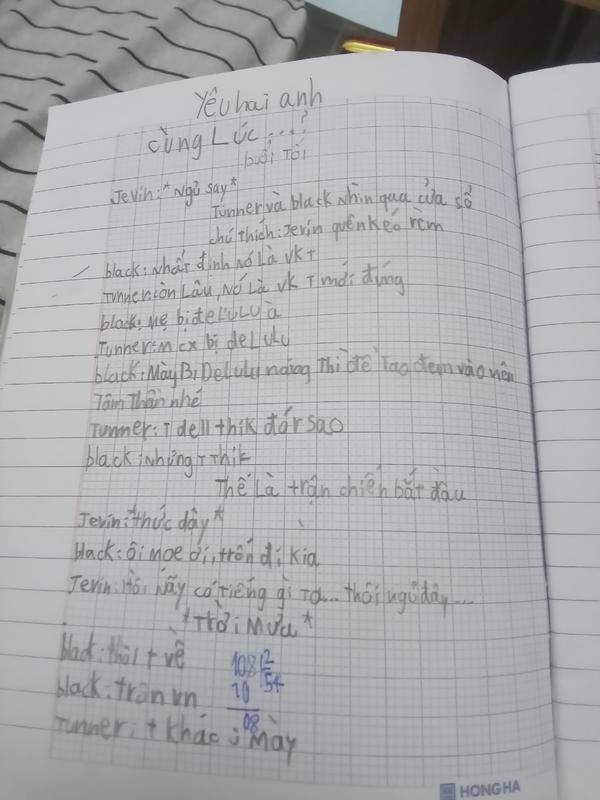 Yêu hai anh
cùng Lúc....?
buổi Tối
Jevin: *Ngủ say*
Tunner và black nhìn qua cửa sổ
chú thích: Jevin quên kéo rèm
black: nhất định nó Là vk t
Tunner: còn Lâu, nó Là vk T mới đúng
black: mẹ bị deLuLu à
Tunner: m cx bị deLulu
black: Mày Bị DeLulu nặng Thì để Tao đem vào viện
Tâm Thần nhé
Tunner: T dell thik đấy sao
black: nhưng T Thik
Thế Là trận chiến bắt đầu
Jevin: *thức dậy*
black: ôi moe ơi, trốn đi kìa
Jevin: Hồi nãy có tiếng gì ta... thôi ngủ đây...
*Trời Mưa*
black: thôi t về
black: trán vn
Tunner: t khác j mày
108 2
10 54
08
HONG HA